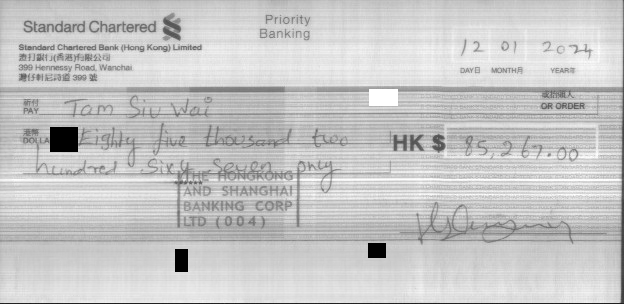 Standard Chartered
Priority
Banking
Standard Chartered Bank (Hong Kong) Limited
渣打銀行(香港)有限公司
399 Hennessy Road, Wanchai
灣仔軒尼詩道 399 號
12 01 2024
DAY日 MONTH月 YEAR年
祈付
PAY Tam Siu Wai
或持票人
OR ORDER
港幣
DOLLA Eighty five thousand two
hundred Sixy Seven only
HK $ 85,267.00
THE HONGKONG
AND SHANGHAI
BANKING CORP
LTD (004)